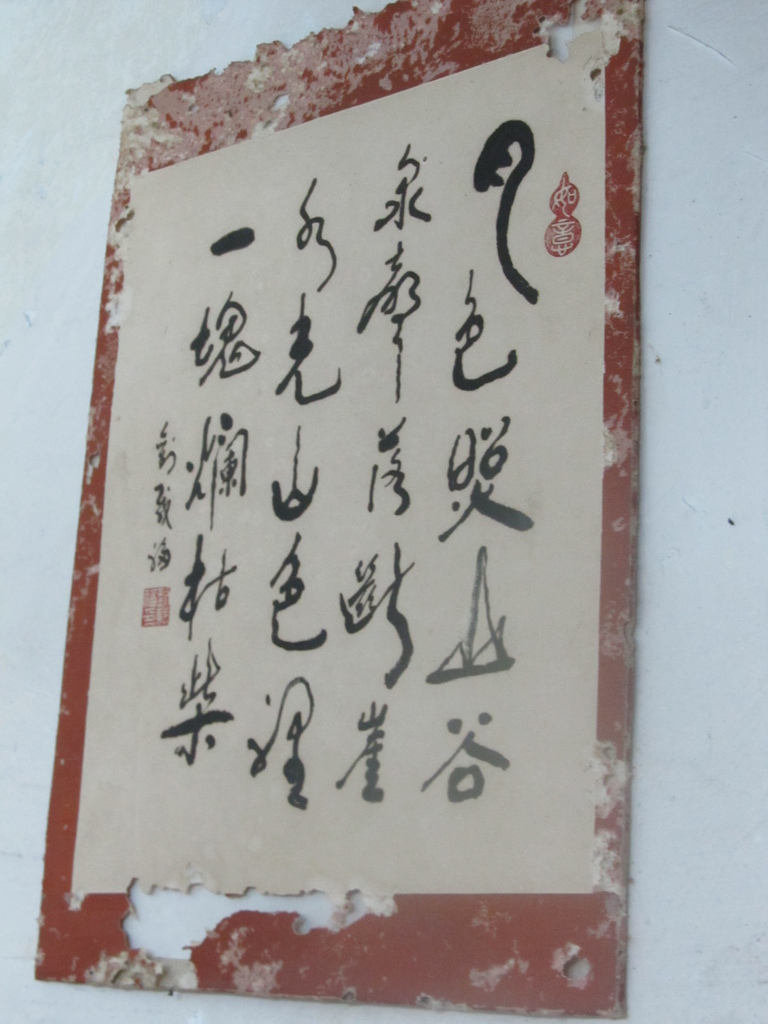 如意
月色照山谷
泉聲落斷崖
水光山色裡
一塊爛枯柴